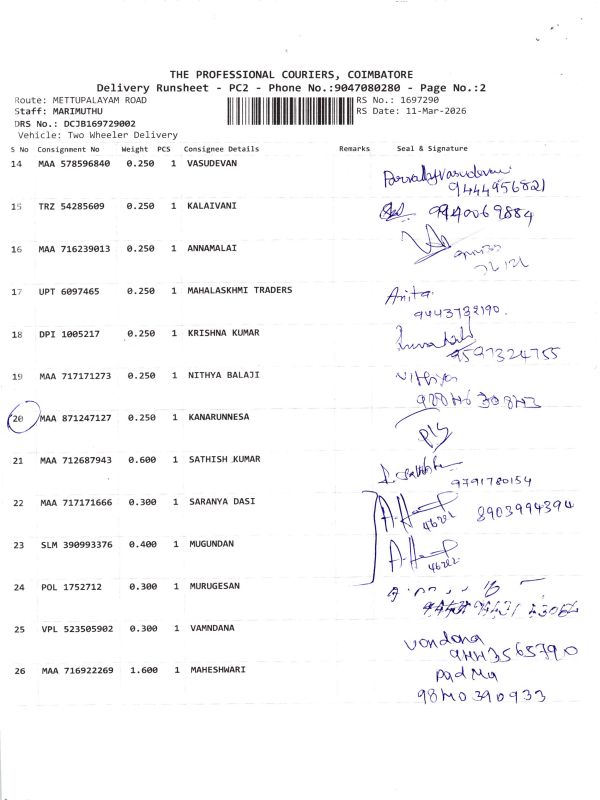 THE PROFESSIONAL COURIERS, COIMBATORE
Delivery Runsheet - PC2 - Phone No.:9047080280 - Page No.:2
Route: METTUPALAYAM ROAD RS No.: 1697290
Staff: MARIMUTHU RS Date: 11-Mar-2026
DRS No.: DCJB169729002
Vehicle: Two Wheeler Delivery
S No Consignment No Weight PCS Consignee Details Remarks Seal & Signature
14 MAA 578596840 0.250 1 VASUDEVAN
9444956821
15 TRZ 54285609 0.250 1 KALAIVANI 9940069884
16 MAA 716239013 0.250 1 ANNAMALAI
17 UPT 6097465 0.250 1 MAHALASKHMI TRADERS Anita
9443732190.
18 DPI 1005217 0.250 1 KRISHNA KUMAR
9597324755
19 MAA 717171273 0.250 1 NITHYA BALAJI
20 MAA 871247127 0.250 1 KANARUNNESA
21 MAA 712687943 0.600 1 SATHISH KUMAR
9791780154
22 MAA 717171666 0.300 1 SARANYA DASI 8903994394
23 SLM 390993376 0.400 1 MUGUNDAN
24 POL 1752712 0.300 1 MURUGESAN
25 VPL 523505902 0.300 1 VAMNDANA vandana
9443565790
26 MAA 716922269 1.600 1 MAHESHWARI Padma
9840390933